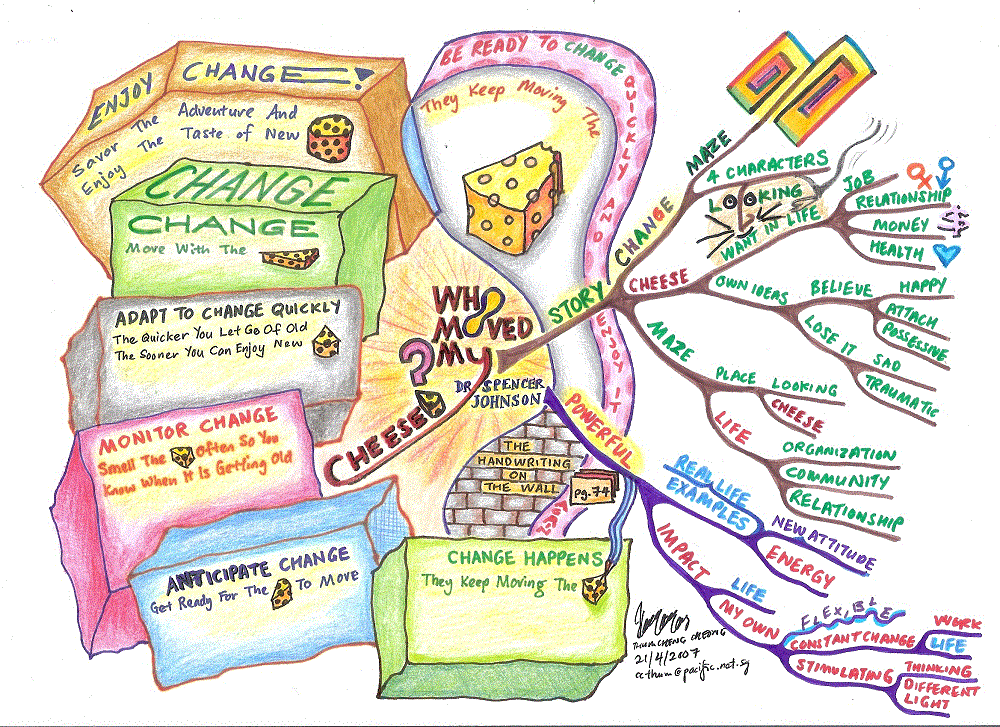 WHO
MOVED
MY
CHEESE?
DR SPENCER
JOHNSON
ENJOY CHANGE!
Savor The Adventure And
Enjoy The Taste of New
CHANGE
CHANGE
Move With The
ADAPT TO CHANGE QUICKLY
The Quicker You Let Go Of Old
The Sooner You Can Enjoy New
MONITOR CHANGE
Smell The Often So You
Know When It Is Getting Old
ANTICIPATE CHANGE
Get Ready For The To Move
CHANGE HAPPENS
They Keep Moving The
THE
HANDWRITING
ON
THE WALL
Pg. 74
BE READY TO CHANGE QUICKLY AND ENJOY IT
They Keep Moving The
STORY
CHANGE
MAZE
4 CHARACTERS
CHEESE
LOOKING
WANT IN LIFE
JOB
RELATIONSHIP
MONEY
HEALTH
OWN IDEAS
BELIEVE
HAPPY
ATTACH
POSSESSIVE
LOSE IT
SAD
TRAUMATIC
MAZE
PLACE
LOOKING
CHEESE
LIFE
ORGANIZATION
COMMUNITY
RELATIONSHIP
POWERFUL
REAL LIFE
EXAMPLES
NEW ATTITUDE
ENERGY
IMPACT
LIFE
MY OWN
FLEXIBLE
CONSTANT CHANGE
WORK
LIFE
STIMULATING
THINKING
DIFFERENT
LIGHT
THUM CHENG CHEONG
21/4/2007
ccthum@pacific.net.sg